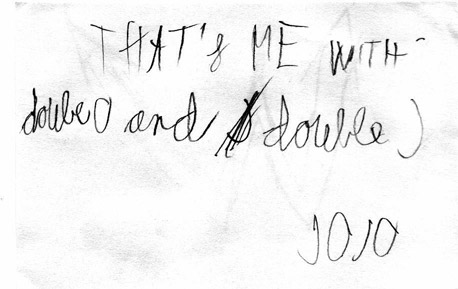 THAT's ME WITH
doubeO and double J
JOJO